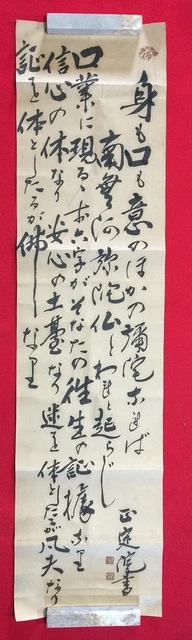 身も口も意のほかの彌陀なれば
南無阿弥陀仏とわれと起らじ
口業に現るゝ南六字がそなたの往生の証據なり
信心の体なり安心の土臺なり迷を体としたるが凡夫なり
証を体としたるが佛なり
正建院書